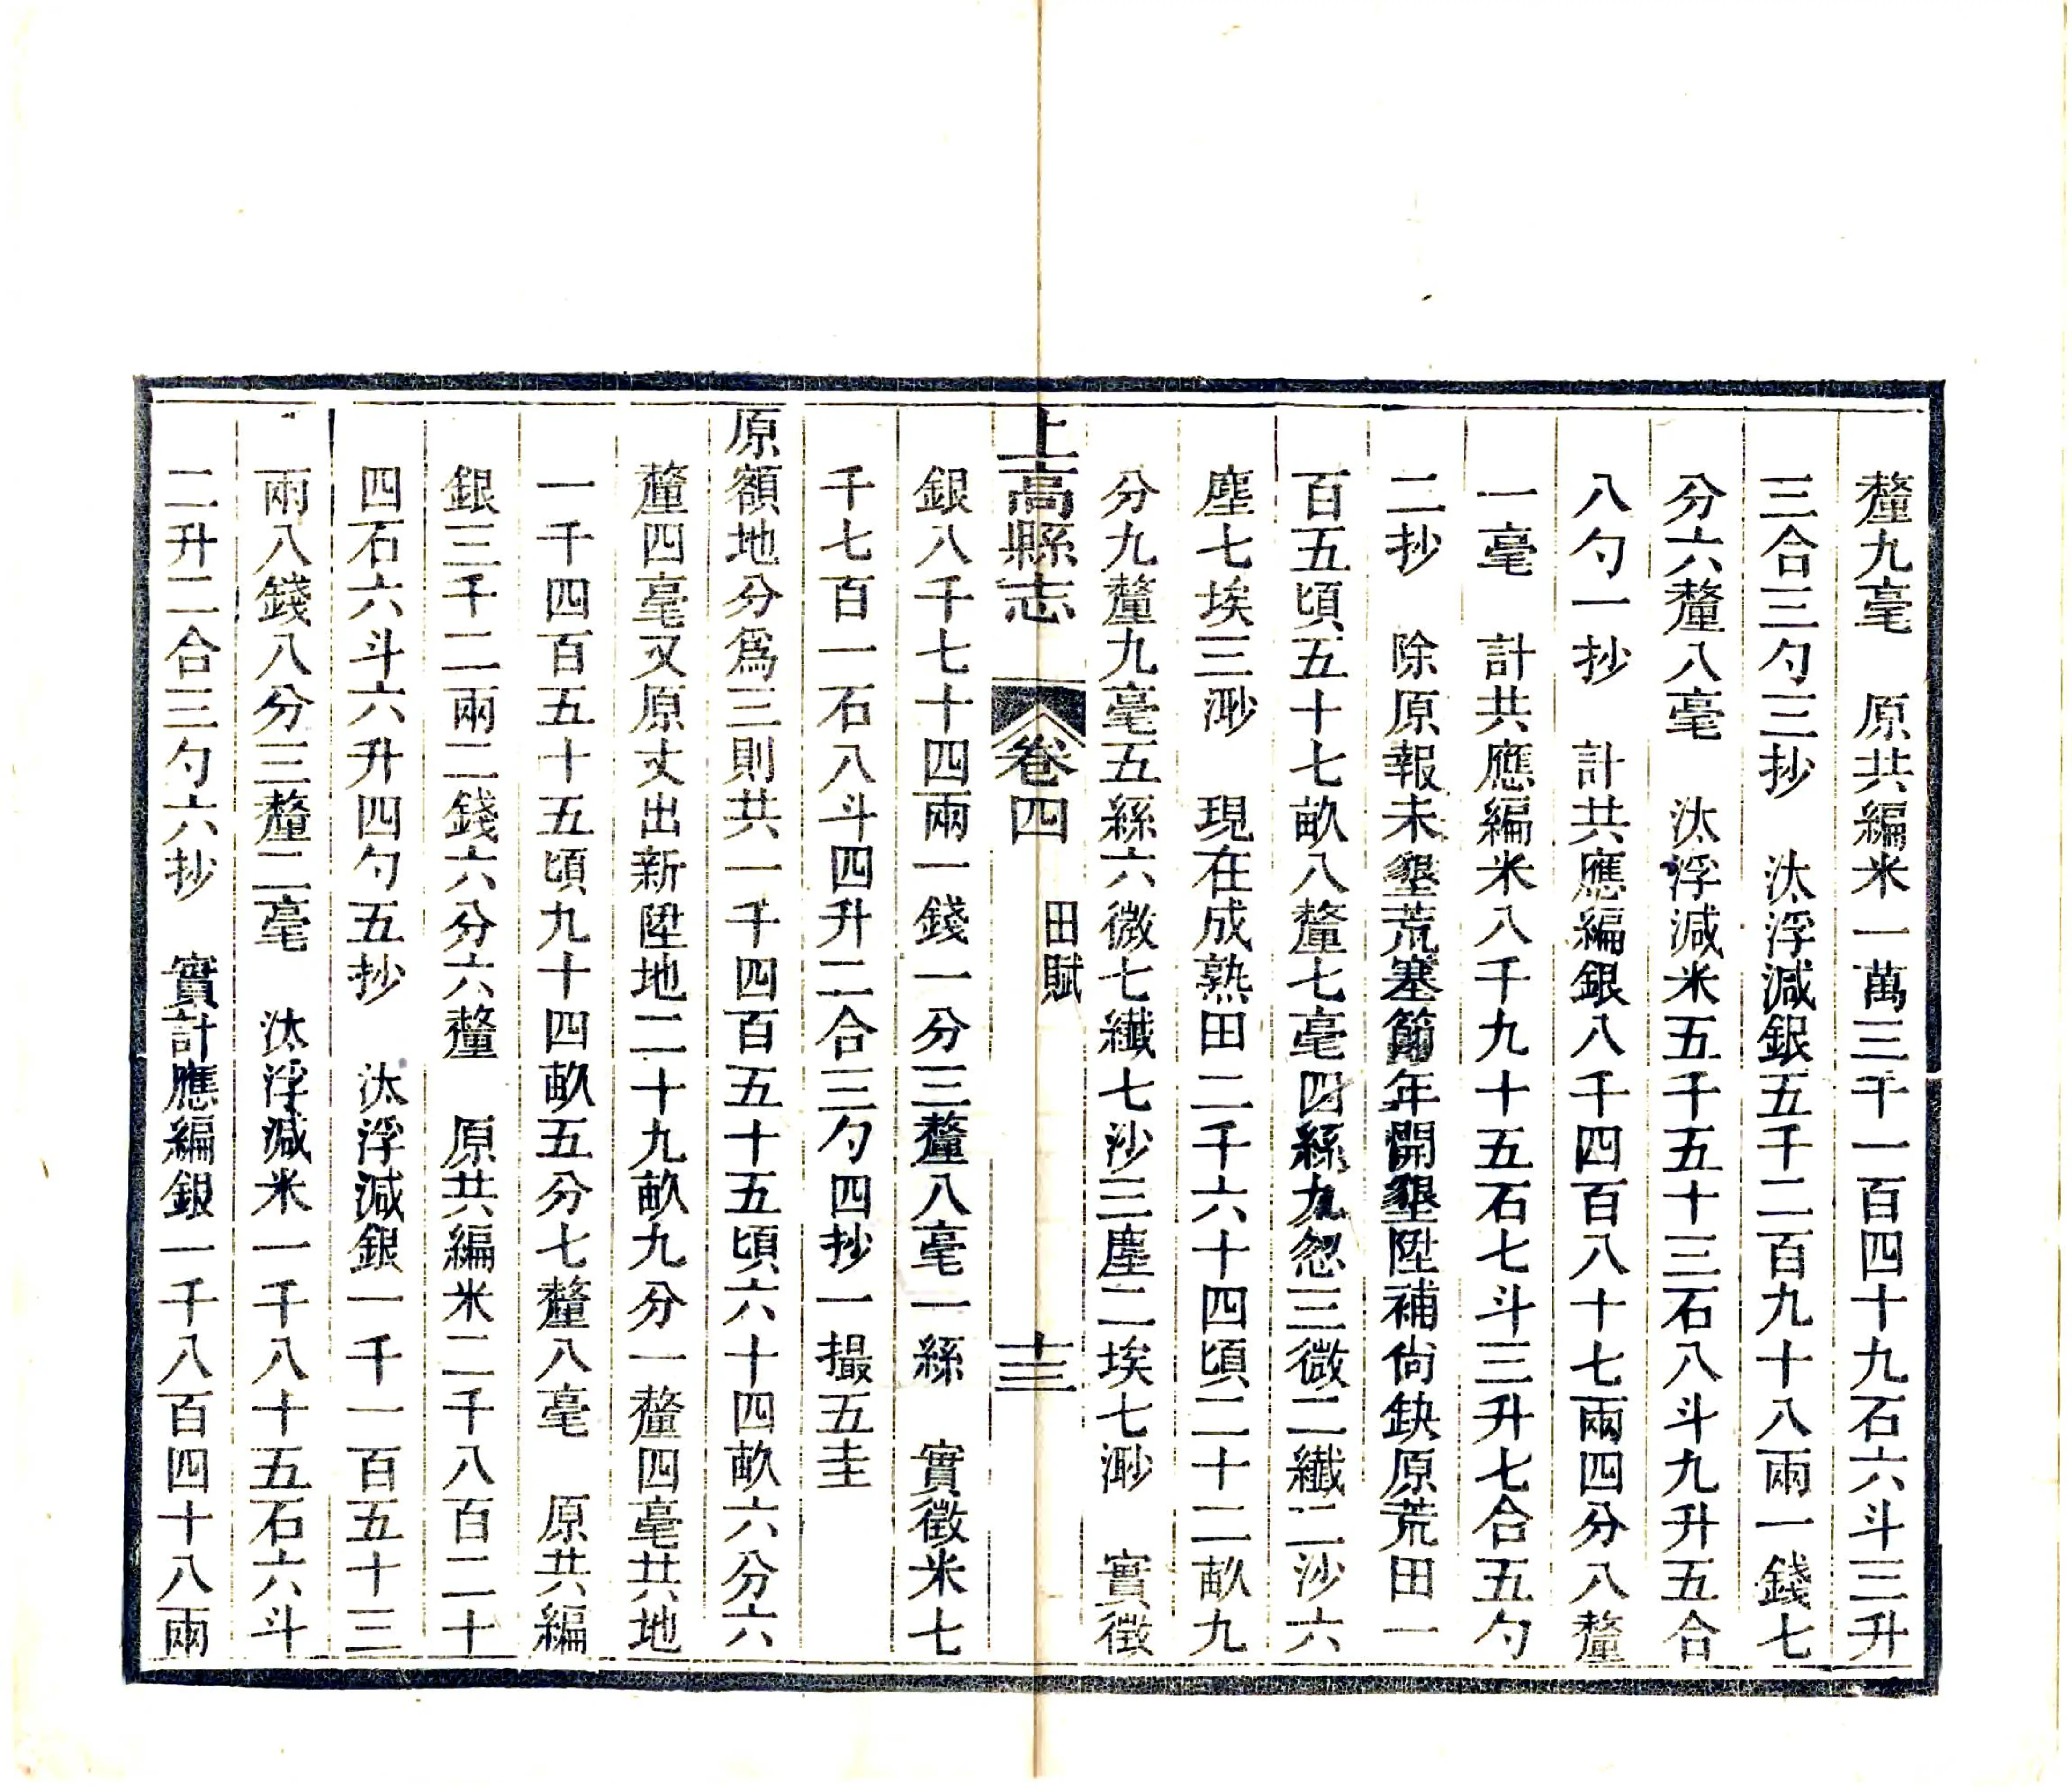 釐九毫　原共編米一萬三千一百四十九石六斗三升
三合三勺三抄　汰浮減銀五千二百九十八兩一錢七
分六釐八毫　汰浮減米五千五十三石八斗九升五合
八勺一抄　計共應編銀八千四百八十七兩四分八釐
一毫　計共應編米八千九十五石七斗三升七合五勺
二抄　除原報未墾荒塞節年開墾陞補尙缺原荒田一
百五頃五十七畝八釐七毫四絲九忽三微二纖二沙六
塵七埃三渺　現在成熟田二千六十四頃二十二畝九
分九釐九毫五絲六微七纖七沙三塵二埃七渺　實徵
上高縣志　卷四　田賦　十三
銀八千七十四兩一錢一分三釐八毫一絲　實徵米七
千七百一石八斗四升二合三勺四抄一撮五圭
原額地分爲三則共一千四百五十五頃六十四畝六分六
釐四毫又原丈出新陞地二十九畝九分一釐四毫共地
一千四百五十五頃九十四畝五分七釐八毫　原共編
銀三千二兩二錢六分六釐　原共編米二千八百二十
四石六斗六升四勺五抄　汰浮減銀一千一百五十三
兩八錢八分三釐二毫　汰浮減米一千八十五石六斗
二升二合三勺六抄　實計應編銀一千八百四十八兩